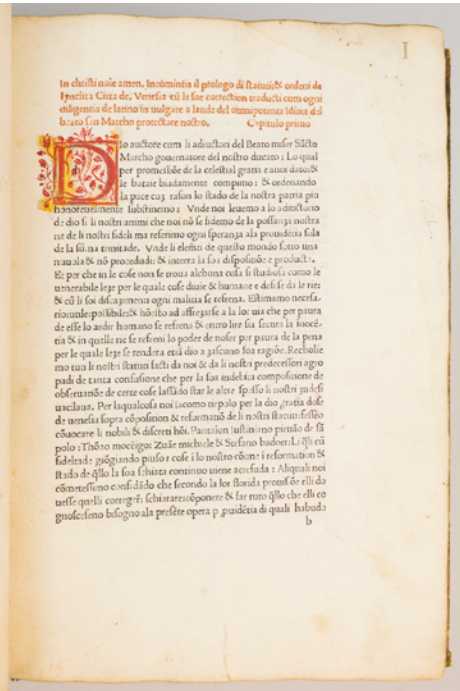 I
In christi noie amen. Incomintia il prologo di statuti & ordeni de
lynclita Cita de Venesia cū le soe correction traducti cum ogni
diligencia de latino in vulgare a laude del omnipotente Idio & del
beato san Marcho protectore nostro. Capitulo primo
DIo auctore cum li adiuctori del Beato miser Sācto
Marcho governatore del nostro ducato : Lo qual
per promessiōe de la celestial gratia e a noi dato &
le bataie biadamente compimo : & ordenando
la pace cum rason lo stado de la nostra patria piu
honorevelmente substinemo : Vnde noi levemo a lo adiuctorio
de dio si li nostri animi che noi nō se fidemo de la possanza nostra
ne de li nostri fideli ma referimo ogni speranza ala providētia sola
de la sūma trinitade. Vnde li elemēti de questo mondo sotto una
& interra la soa dispositiōe e producta.
Et per che in le cose non se trova alchuna cosa si studiosa como le
venerabile leze per le quale cose divie & humane e
& cū li soi ogni malicia se refrena. Estimamo necesa
a la loc via che per paura
de esse lo ardir humano se refrena & entro lure sia secura la inocē
tia & in quelle ne se refreni lo poder de noser per paura de la pena
per le quale leze se rendera etiā dio a zascuno soa ragiōe. Recholie
mo tuti li nostri statuti facti da noi & da li nostri predecessori agro
padi de tanta confusione che per la soa indebita compositione de
observatiōe de certe cose lassado star le altre spesso li nostri zudesi
vacilava. Per laqualcosa noi iacomo tiepolo per la dio gratia dose
de venesia sopra cōpositiōn & reformatiō de li nostri statuti
cōvocare li nobili & discreti hōi. Pantalon Iustiniano piovāo de sā
polo : Thōāo mocēigo: Zuāe michiele & Stefano badoer:
fideltade giōgiando piu so e cose i lo nostro i reformation &
studo de qllo la soa continuo viene : Aliquali noi
cōmetessimo confidādo che secondo la lor florida promissōe elli do
vesse quelli corregere schiarare cōponere & far tuto qllo che elli co
gnosceseno bisogno ala presēte opera p puidētia di quali habudo
b